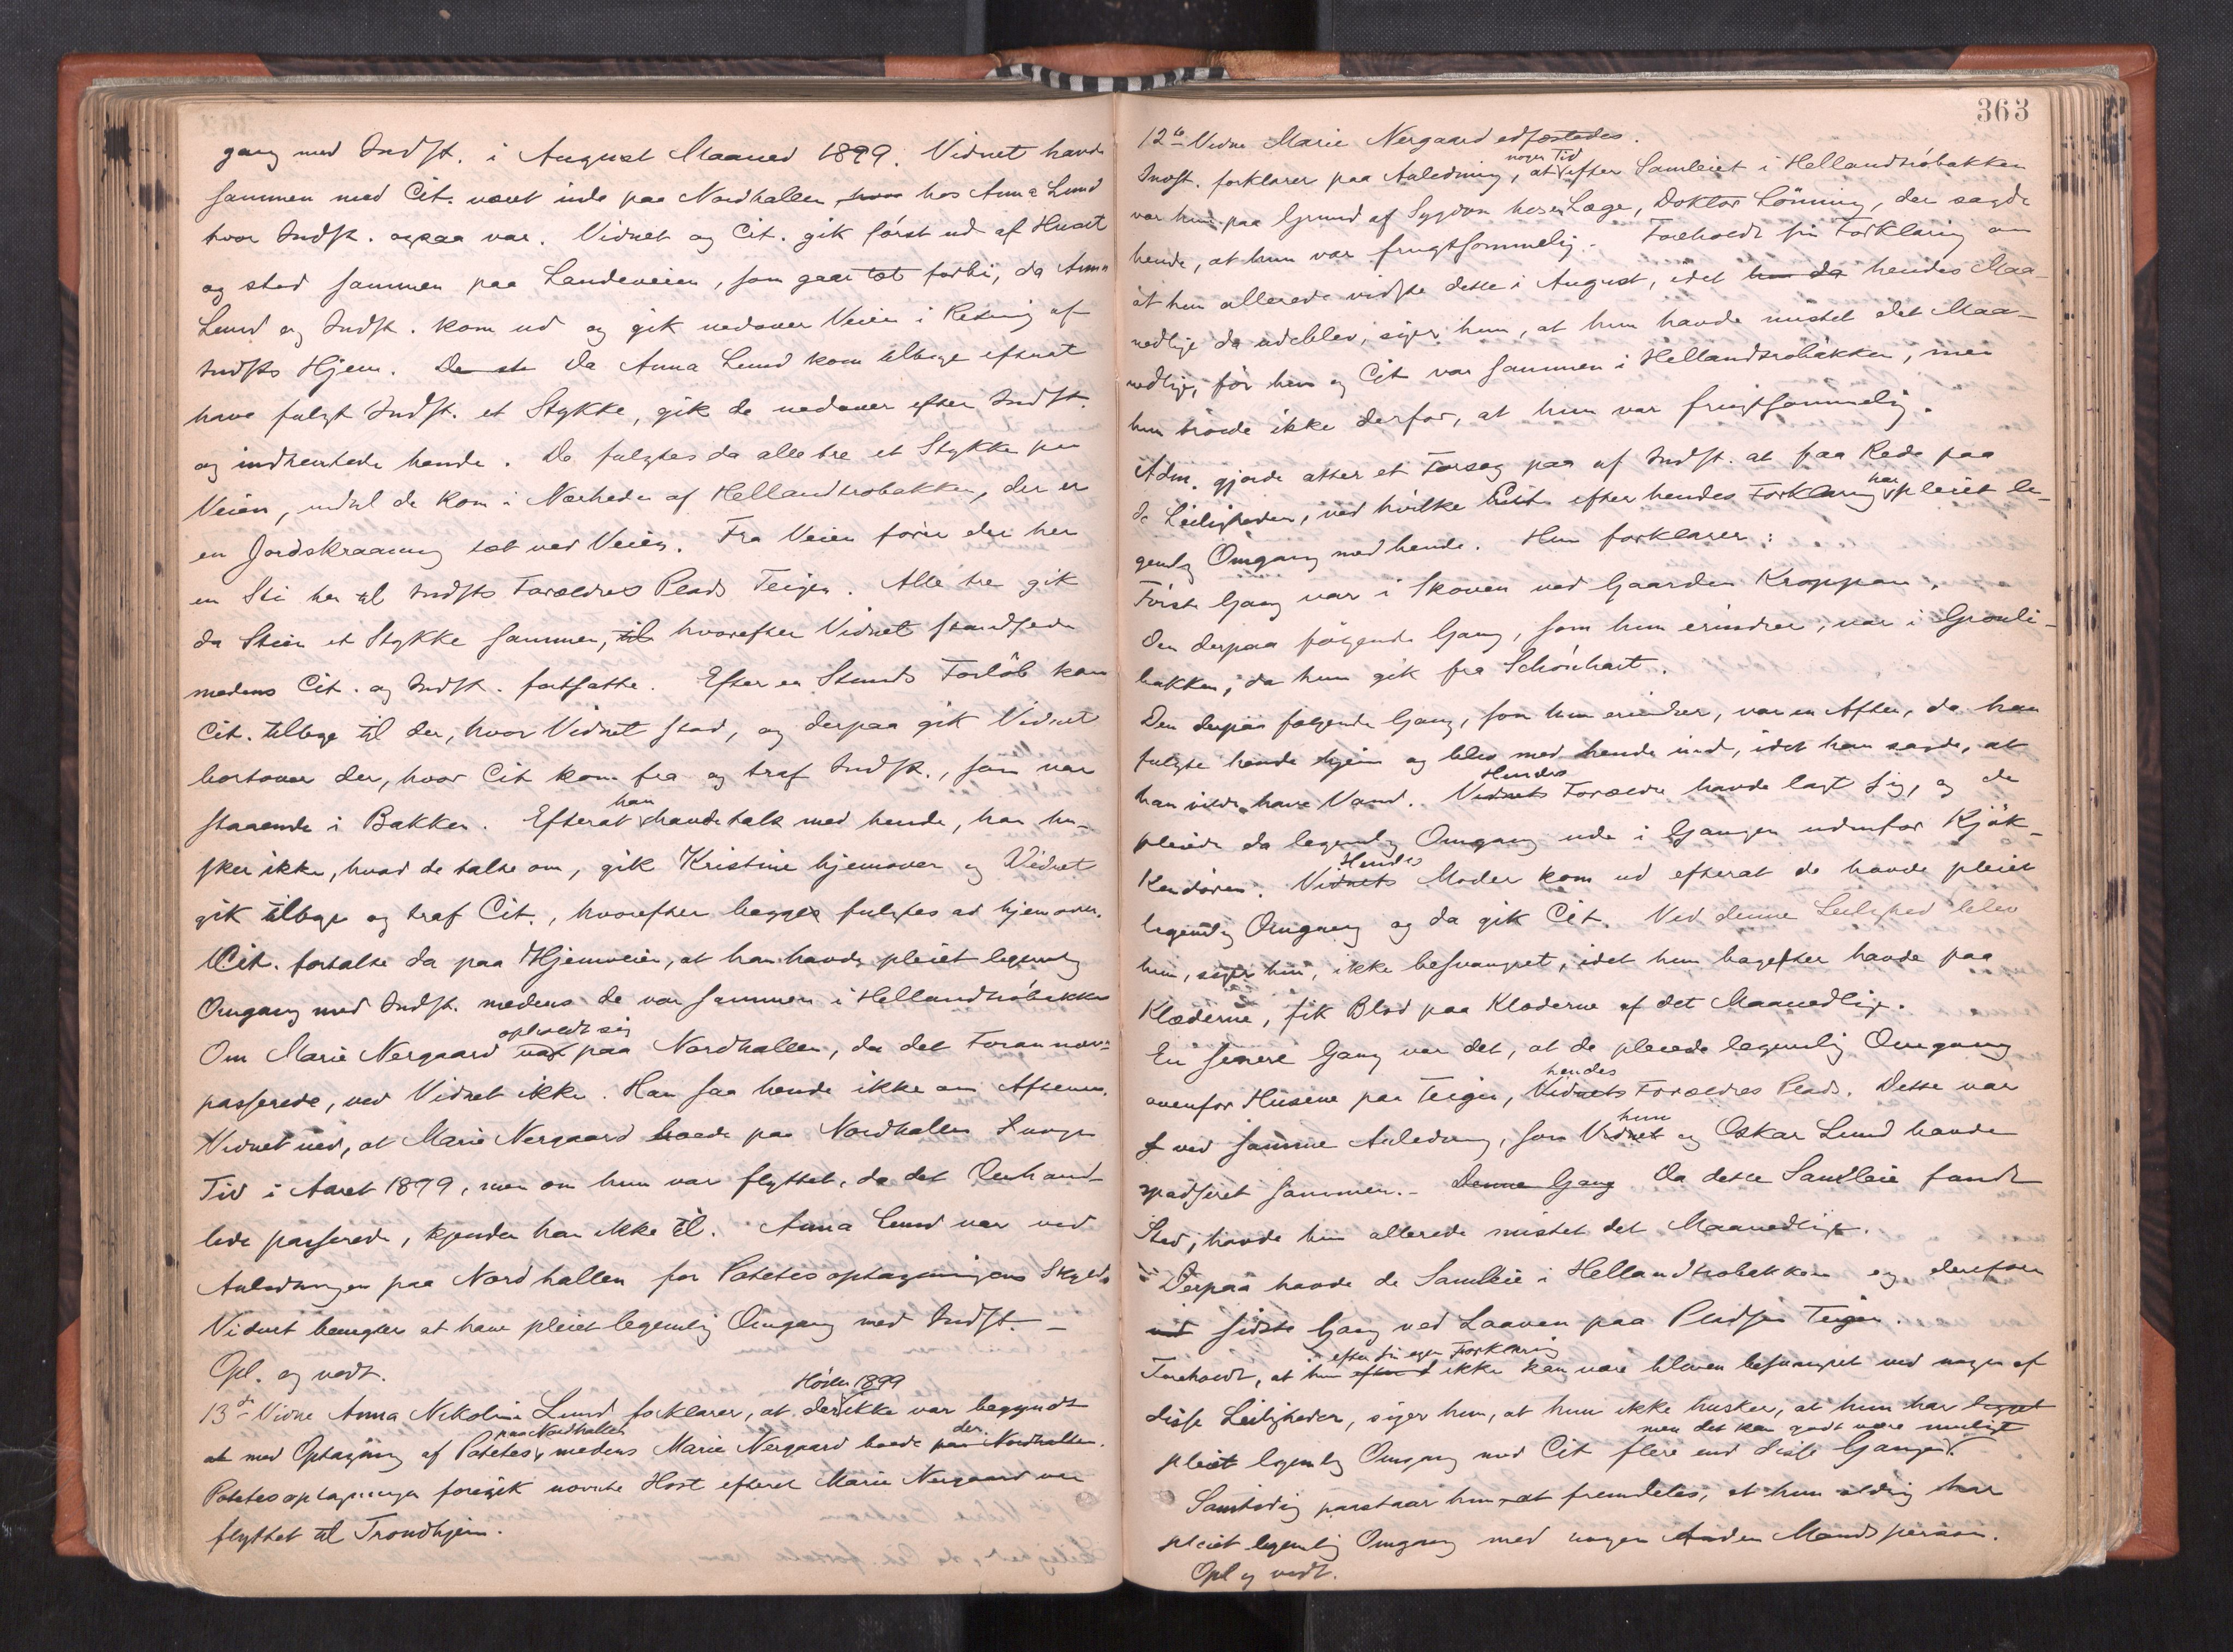 gang med Indst. i August Maaned 1899. Vidnet havde
sammen med Cit. været inde paa Nordhallen hos Anna Lund
hvor Indst. ogsaa var. Vidnet og Cit. gik først ud af Huset
og stod sammen paa Landeveien, som gaar tæt forbi, da Anna
Lund og Indst. kom ud og gik nedover Veien i Retning af
Indsts Hjem. Da Anna Lund kom tilbage efterat
have fulgt Indst. et Stykke, gik de nedover efter Indst.
og indhentede hende. De fulgtes da alle tre et Stykke paa
Veien, indtil de kom i Nærheden af Hellandtrøbakken, der er
en Jordskraaning tæt ved Veien. Fra Veien fører der her
en Sti hen til Indsts Forældres Plads Teigen. Alle tre gik
da Stien et Stykke sammen, til hvorefter Vidnet standsede
medens Cit. og Indst. fortsatte. Efter en Stunds Forløb kom
Cit. tilbage til der, hvor Vidnet stod, og derpaa gik Vidnet
bortover der, hvor Cit kom fra og traf Indst., som var
staaende i Bakken. Efterat han havde talt med hende, han hu-
sker ikke, hvad de talte om, gik Kristine hjemover og Vidnet
gik tilbage og traf Cit., hvorefter begge fulgtes ad hjemover.
Cit. fortalte da paa Hjemveien, at han havde pleiet legemlig
Omgang med Indst. medens de var sammen i Hellandtrøbakken
Om Marie Nergaard var opholdt sig paa Nordhallen, da det Forannævnte
passerede, ved Vidnet ikke. Han saa hende ikke om Aftenen.
Vidnet ved, at Marie Nergaard boede paa Nordhallen
Tid i Aaret 1899, men om hun var flyttet, da det Omhand-
lede passerede, kjender han ikke til. Anna Lund var ved
Anledningen paa Nordhallen for Potetesoptagningens Skyld.
Vidnet benegter at have pleiet legemlig Omgang med Indst. –
Opl. og vedt.
13de Vidne Anna Nikoline Lund forklarer, at der Høsten 1899 ikke var begyndt
med Optagning af Potetes paa Nordhallen, medens Marie Nergaard boede der paa Nordhallen.
Potetesoptagningen foregik nævnte Høst efterat Marie Nergaard var
flyttet til Trondhjem.
363
12te Vidne Marie Nergaard edfæstedes.
Indst. forklarer paa Anledning, at nogen Tid efter Samleiet i Hellandtrøbakken
var hun paa Grund af Sygdom hos en Læge, Doktor Lønning, der sagde
hende, at hun var frugtsommelig. Foreholdt sin Forklaring om
at hun allerede vidste dette i August, idet hun da hendes Maa-
nedlige da udeblev, siger hun, at hun havde mistet det Maa-
nedlige, før hun og Cit var sammen i Hellandtrøbakken, men
hun troede ikke derfor, at hun var frugtsommelig.
Adm. gjorde atter et Forsøg paa af Indst. at faa Rede paa
de Leiligheder, ved hvilke Cit efter hendes Forklaring har pleiet le-
gemlig Omgang med hende. Hun forklarer:
Første Gang var i Skoven ved Gaarden Kroppan.
Den derpaa følgende Gang, som hun erindrer, var i Gronli-
bakken, da hun gik fra Schönhart.
Den derpaa følgende Gang, som hun erindrer, var en Aften, da han
fulgte hende hjem og blev med hende ind, idet han sagde, at
han vilde have Vand. Vidnets Hendes Forældre havde lagt sig, og de
pleiede da legemlig Omgang ude i Gangen udenfor Kjøk-
kendøren. Vidnets Hendes Moder kom ud efterat de havde pleiet
legemlig Omgang og da gik Cit. Ved denne Leilighed blev
hun, siger hun, ikke besvangret, idet hun bagefter havde paa
Klæderne, fik Blod paa Klæderne af det Maanedlige.
En senere Gang var det, at de pleiede legemlig Omgang
ovenfor Husene paa Teigen, Vidnets hendes Forældres Plads. Dette var
ved samme Anledning, som Vidnet hun og Oskar Lund havde
spadseret sammen. – Denne Gang Da dette Samleie fandt
Sted, havde hun allerede mistet det Maanedlige.
Derpaa havde de Samleie i Hellandtrobakken og derefter
sidste Gang ved Laaven paa Pladsen Teigen.
Foreholdt, at hun efter sin egen Forklaring ikke kan være bleven besvangret ved nogen af
disse Leiligheder, siger hun, at hun ikke husker, at hun har
pleiet legemlig Omgang med Cit flere end disse Gange, men det kan godt være muligt
Samtidig paastaar hun at fremdeles, at hun aldrig har
pleiet legemlig Omgang med nogen Anden Mandsperson.
Opl og vedt.